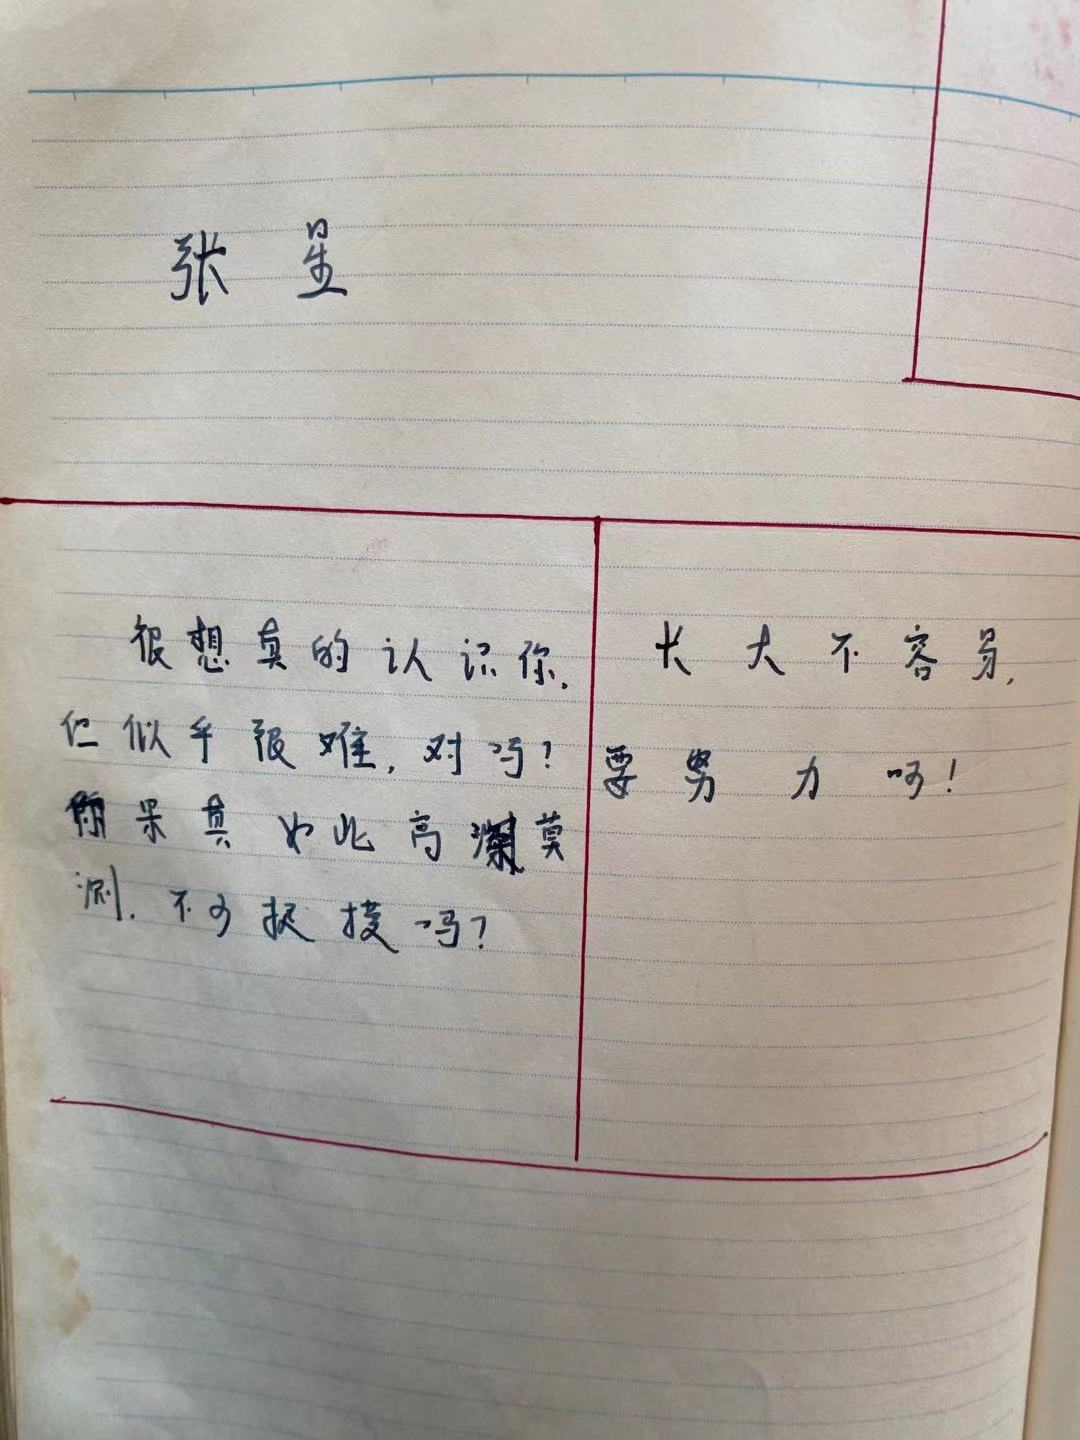 张星
很想真的认识你.
但似乎很难, 对吗?
果真如此高深莫
测. 不可捉摸吗?
长大不容易,
要努力啊!